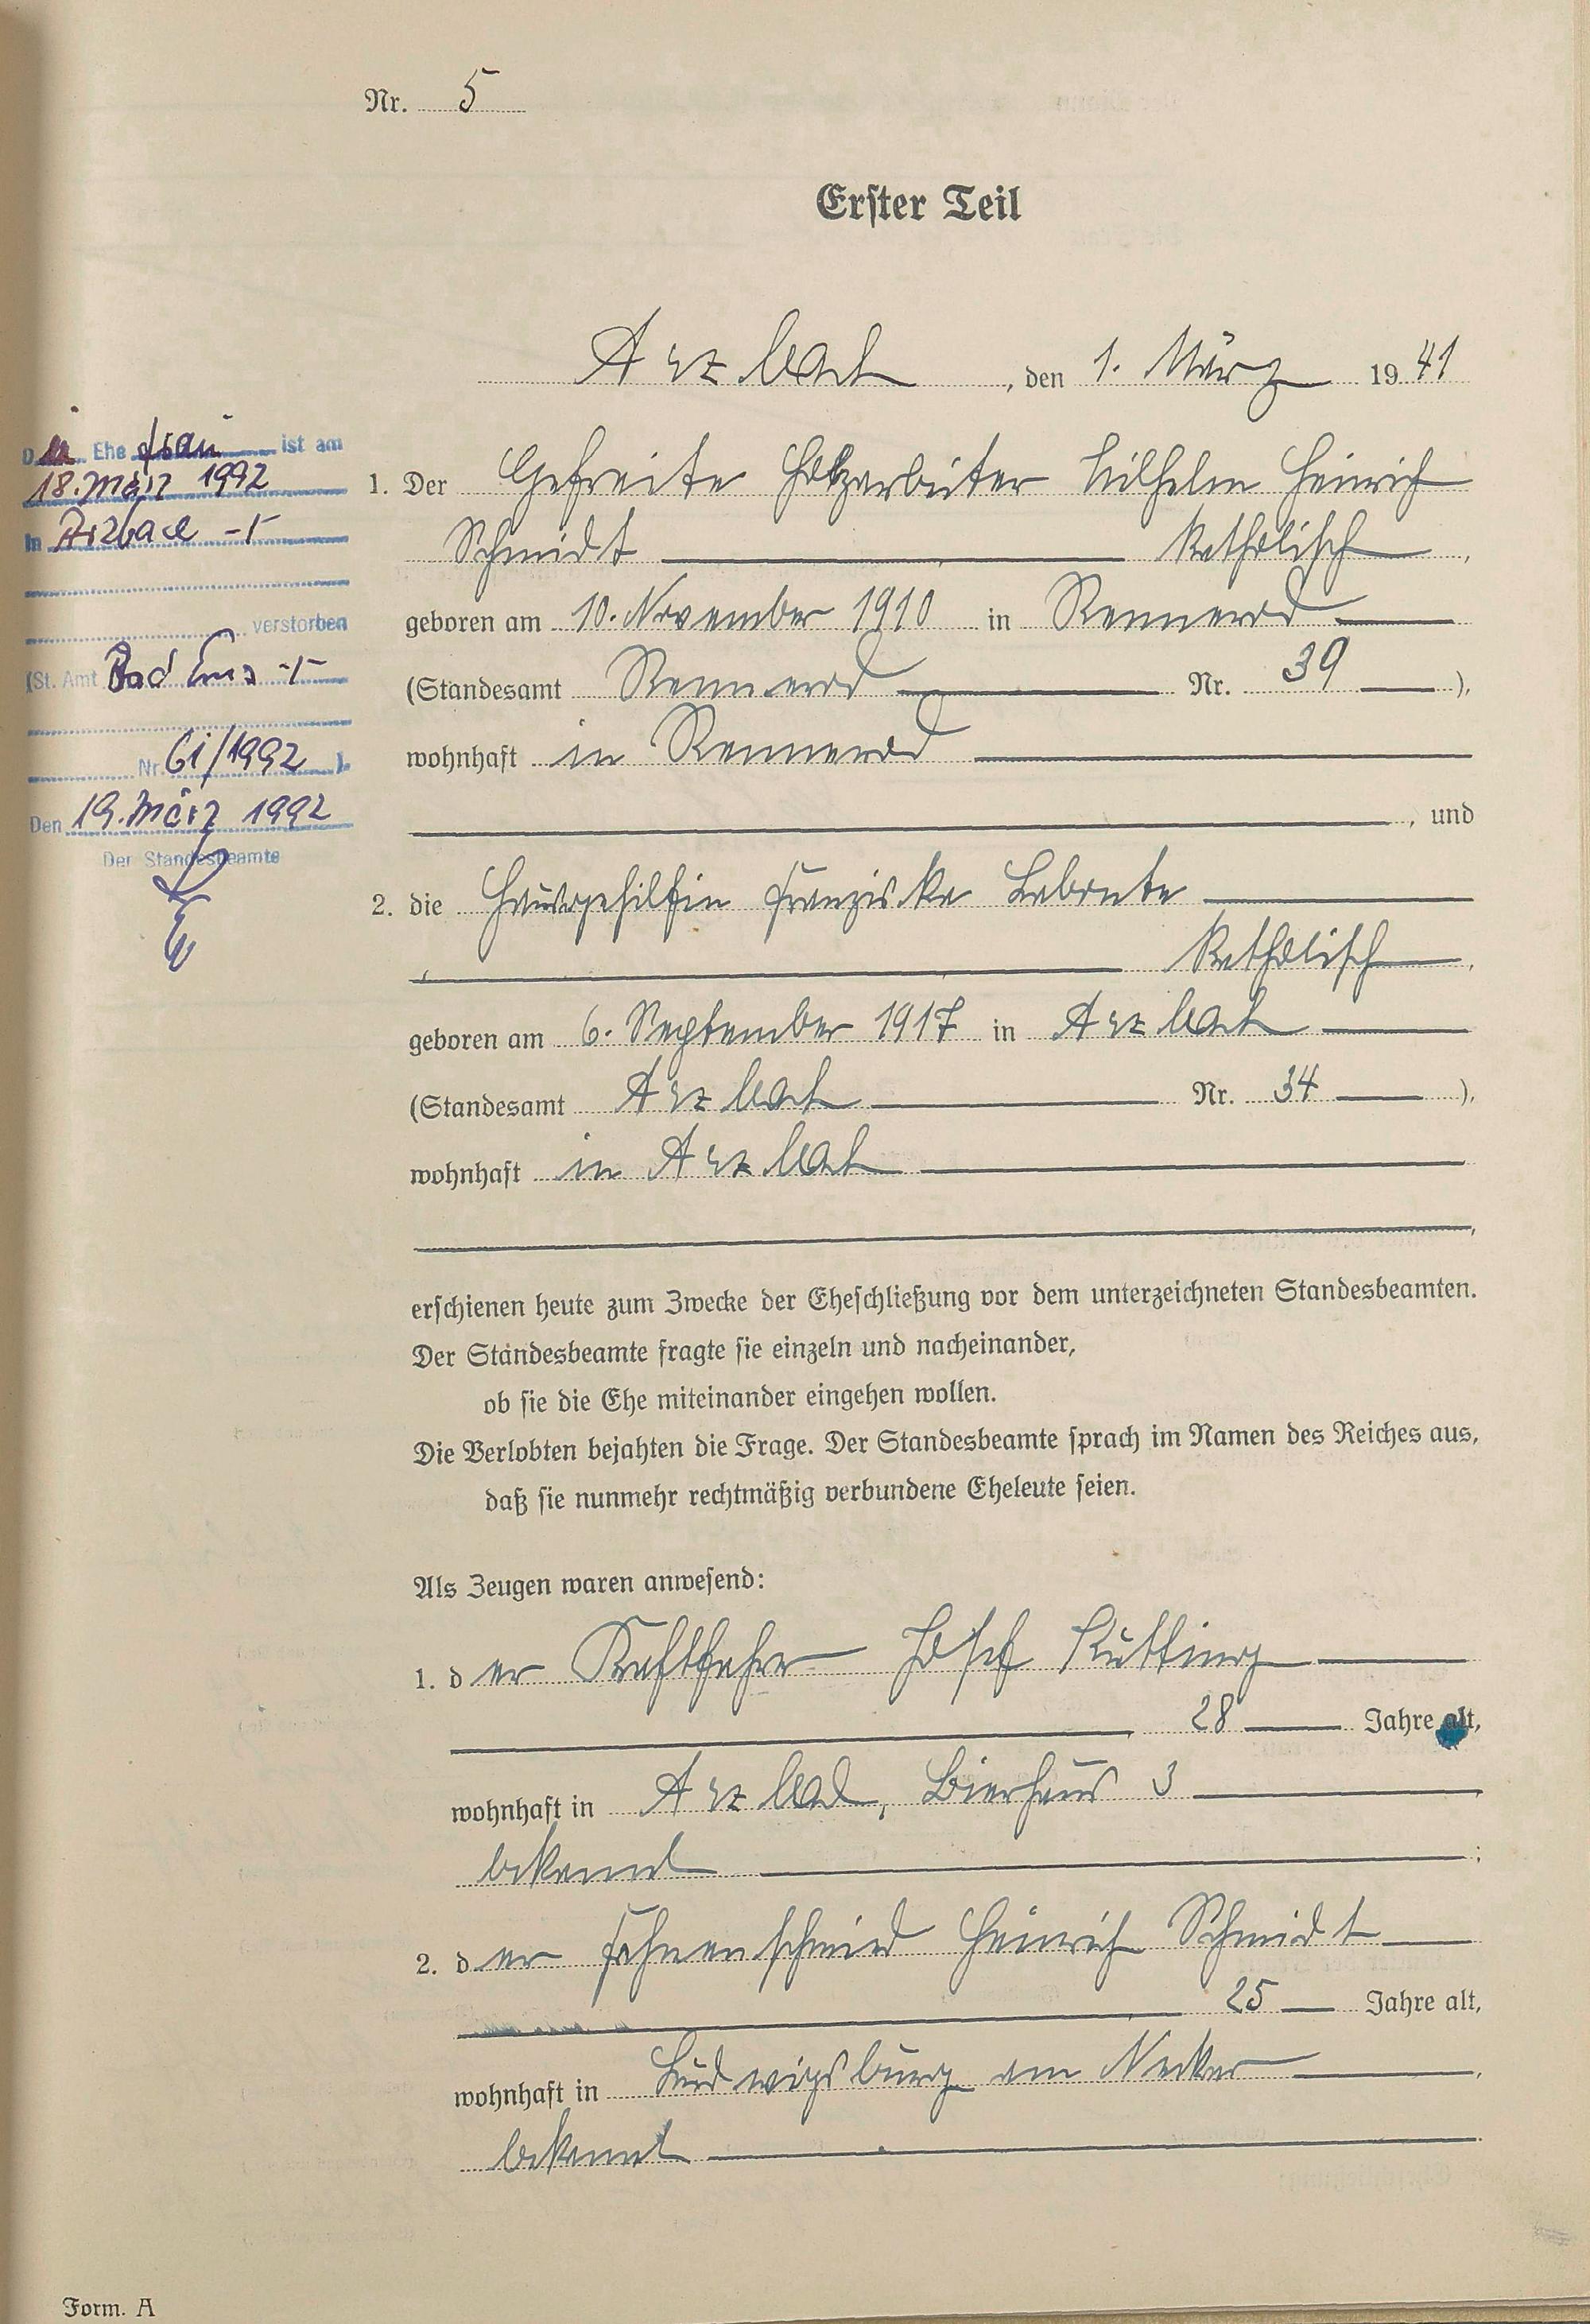 Nr. 5
Erster Teil
Arzbach, den 1. März 1941
1. Der Gefreite Holzarbeiter Wilhelm Heinrich
Schmidt katholisch,
geboren am 10. November 1910 in Rennerod
(Standesamt Rennerod Nr. 39),
wohnhaft in Rennerod
, und
2. die Hausgehilfin Franziska Labonte
katholisch,
geboren am 6. September 1917 in Arzbach
(Standesamt Arzbach Nr. 34),
wohnhaft in Arzbach
,
erschienen heute zum Zwecke der Eheschließung vor dem unterzeichneten Standesbeamten.
Der Standesbeamte fragte sie einzeln und nacheinander,
ob sie die Ehe miteinander eingehen wollen.
Die Verlobten bejahten die Frage. Der Standesbeamte sprach im Namen des Reiches aus,
daß sie nunmehr rechtmäßig verbundene Eheleute seien.
Als Zeugen waren anwesend:
1. der Kraftfahrer Josef
28 Jahre alt,
wohnhaft in Arzbach, Bierhaus 3
bekannt;
2. der Fahnenschmied Heinrich Schmidt
25 Jahre alt,
wohnhaft in Ludwigsburg am Neckar,
bekannt.
Die Ehefrau ist am
18. März 1992
in Arzbach -/-
verstorben
(St. Amt Bad Ems -/-
Nr. 61/1992).
Den 19. März 1992
Der Standesbeamte
Form. A